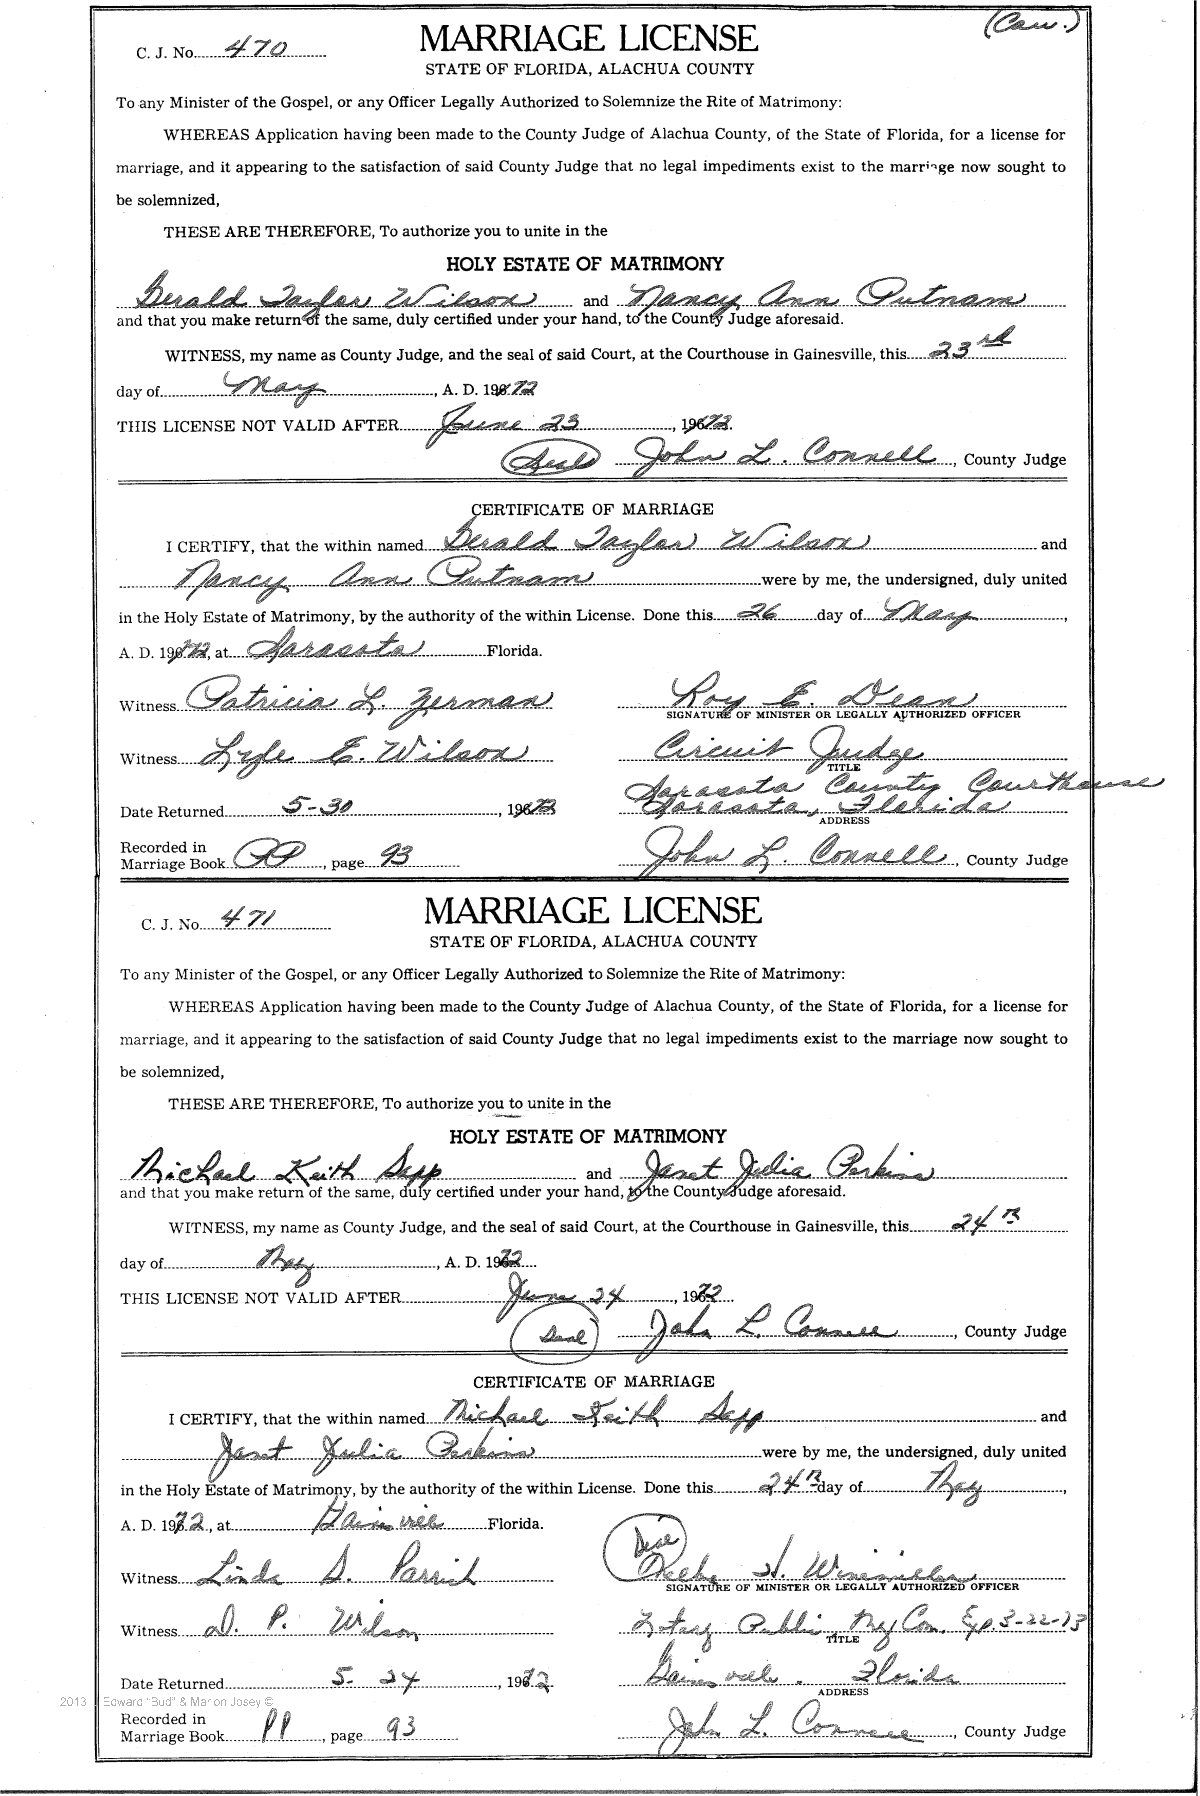 (Cau.)
C. J. No. 470
MARRIAGE LICENSE
STATE OF FLORIDA, ALACHUA COUNTY
To any Minister of the Gospel, or any Officer Legally Authorized to Solemnize the Rite of Matrimony:
WHEREAS Application having been made to the County Judge of Alachua County, of the State of Florida, for a license for
marriage, and it appearing to the satisfaction of said County Judge that no legal impediments exist to the marriage now sought to
be solemnized,
THESE ARE THEREFORE, To authorize you to unite in the
HOLY ESTATE OF MATRIMONY
Gerald Taylor Wilson and Nancy Ann Putnam
and that you make return of the same, duly certified under your hand, to the County Judge aforesaid.
WITNESS, my name as County Judge, and the seal of said Court, at the Courthouse in Gainesville, this 23rd
day of May, A. D. 1972
THIS LICENSE NOT VALID AFTER June 23, 1972.
(Seal) John L. Connell, County Judge
CERTIFICATE OF MARRIAGE
I CERTIFY, that the within named Gerald Taylor Wilson and
Nancy Ann Putnam were by me, the undersigned, duly united
in the Holy Estate of Matrimony, by the authority of the within License. Done this 26 day of May,
A. D. 1972, at Sarasota Florida.
Witness Patricia L. Zerman Roy E. Dean
SIGNATURE OF MINISTER OR LEGALLY AUTHORIZED OFFICER
Witness Lyle E. Wilson Circuit Judge
TITLE
Sarasota County Courthouse
Date Returned 5-30, 1972 Sarasota, Florida
ADDRESS
Recorded in
Marriage Book PP, page 93 John L. Connell, County Judge
C. J. No. 471
MARRIAGE LICENSE
STATE OF FLORIDA, ALACHUA COUNTY
To any Minister of the Gospel, or any Officer Legally Authorized to Solemnize the Rite of Matrimony:
WHEREAS Application having been made to the County Judge of Alachua County, of the State of Florida, for a license for
marriage, and it appearing to the satisfaction of said County Judge that no legal impediments exist to the marriage now sought to
be solemnized,
THESE ARE THEREFORE, To authorize you to unite in the
HOLY ESTATE OF MATRIMONY
Michael Keith Sapp and Janet Julia Perkins
and that you make return of the same, duly certified under your hand, to the County Judge aforesaid.
WITNESS, my name as County Judge, and the seal of said Court, at the Courthouse in Gainesville, this 24th
day of May, A. D. 1972
THIS LICENSE NOT VALID AFTER June 24, 1972
(Seal) John L. Connell, County Judge
CERTIFICATE OF MARRIAGE
I CERTIFY, that the within named Michael Keith Sapp and
Janet Julia Perkins were by me, the undersigned, duly united
in the Holy Estate of Matrimony, by the authority of the within License. Done this 24th day of May,
A. D. 1972, at Gainsville Florida.
Seal
Witness Linda S. Parrish H.
SIGNATURE OF MINISTER OR LEGALLY AUTHORIZED OFFICER
Witness D. P. Wilson Notary Public My Com. Exp. 3-22-73
TITLE
Date Returned 5-24, 1972 Gainsville, Florida
ADDRESS
2013 Edward "Bud" & Marion Josey ©
Recorded in
Marriage Book PP, page 93 John L. Connell, County Judge